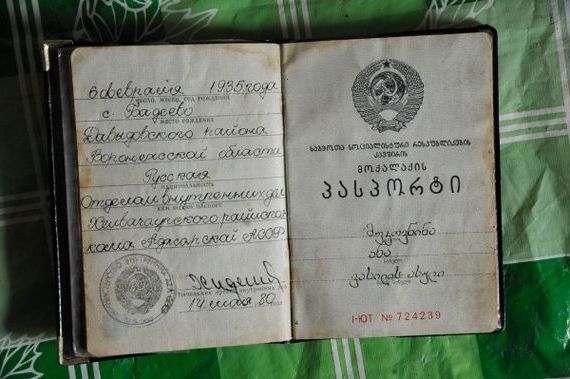 6 февраля 1935 года
число, месяц, год рождения
с. Бадеево
место рождения
Давыдовского района
Воронежской области
Русская
национальность
Отделом внутренних дел
кем выдан паспорт
Хелвачаурского райисполкома Аджарской АССР
14 мая 80
საბჭოთა სოციალისტური რესპუბლიკების
კავშირის
მოქალაქის
პასპორტი
ანა
სახელი
მამის სახელი
I-ЮТ № 724239